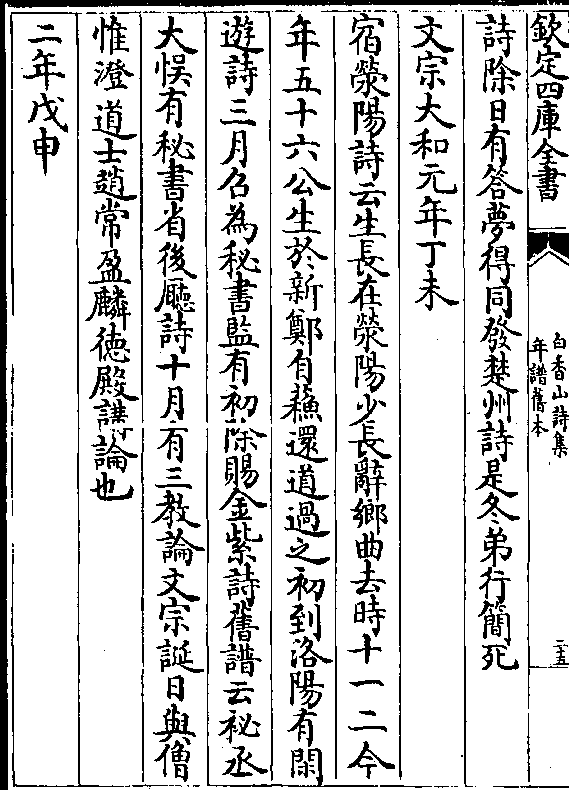 欽定四庫全書
白香山詩集
年譜舊本
二五
詩除日有答夢得同發楚州詩是冬弟行簡死
文宗大和元年丁未
宿滎陽詩云生長在滎陽少長辭鄉曲去時十一二今
年五十六公生於新鄭自蘓還道過之初到洛陽有閑
遊詩三月召為秘書監有初除賜金紫詩舊譜云祕丞
大悞有秘書省後㕔詩十月有三教論文宗誕日與僧
惟澄道士趙常盈麟徳殿講論也
二年戊申